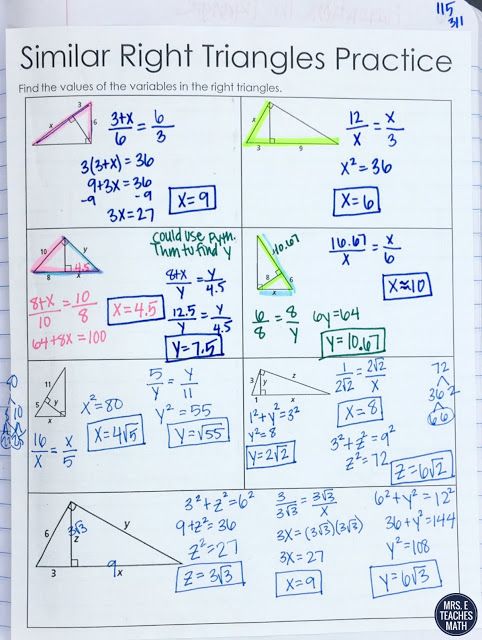 115
311
Similar Right Triangles Practice
Find the values of the variables in the right triangles.
3
x
6
3+x/6 = 6/3
3(3+x) = 36
9+3x = 36
-9 -9
3x = 27
x = 9
x
3
9
12/x = x/3
x² = 36
x = 6
10
y
8
x
4.5
could use Pyth.
Thm to find y
8+x/10 = 10/8
64+8x = 100
x = 4.5
8+x/y = y/4.5
12.5/y = y/4.5
y = 7.5
10.67
8
6
x
16.67/x = x/6
x ≈ 10
6/8 = 8/y
6y = 64
y = 10.67
11
5
y
x
16/x = x/5
x² = 80
x = 4√5
5/y = y/11
y² = 55
y = √55
80
3
y
z
1
x
1² + y² = 3²
y² = 8
y = 2√2
1/2√2 = 2√2/x
x = 8
3² + z² = 9²
z² = 72
z = 6√2
72
36 2
6 6
6
3√3
z
y
3
9
x
3² + z² = 6²
9 + z² = 36
z² = 27
z = 3√3
3/3√3 = 3√3/x
3x = (3√3)(3√3)
3x = 27
x = 9
6² + y² = 12²
36 + y² = 144
y² = 108
y = 6√3
MRS. E
TEACHES
MATH